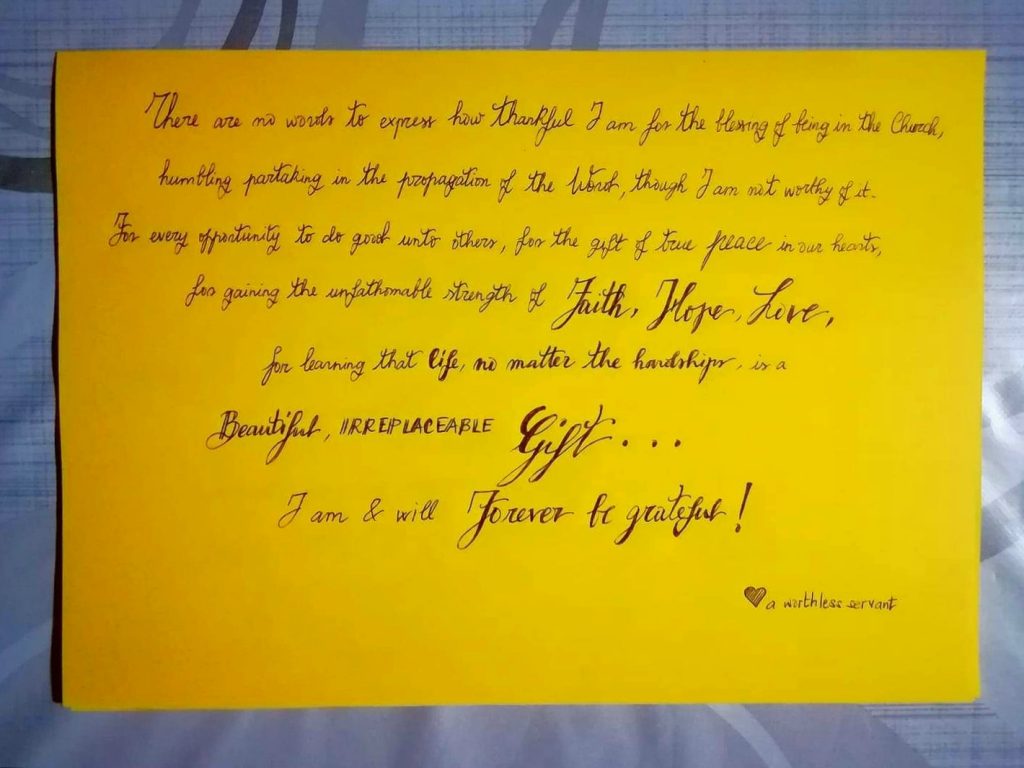 There are no words to express how thankful I am for the blessing of being in the Church,
humbling partaking in the propagation of the Word, though I am not worthy of it.
For every opportunity to do good unto others, for the gift of true peace in our hearts,
for gaining the unfathomable strength of Faith, Hope, Love,
for learning that life, no matter the hardships, is a
Beautiful, IRREPLACEABLE Gift...
I am & will Forever be grateful!
♥ a worthless servant